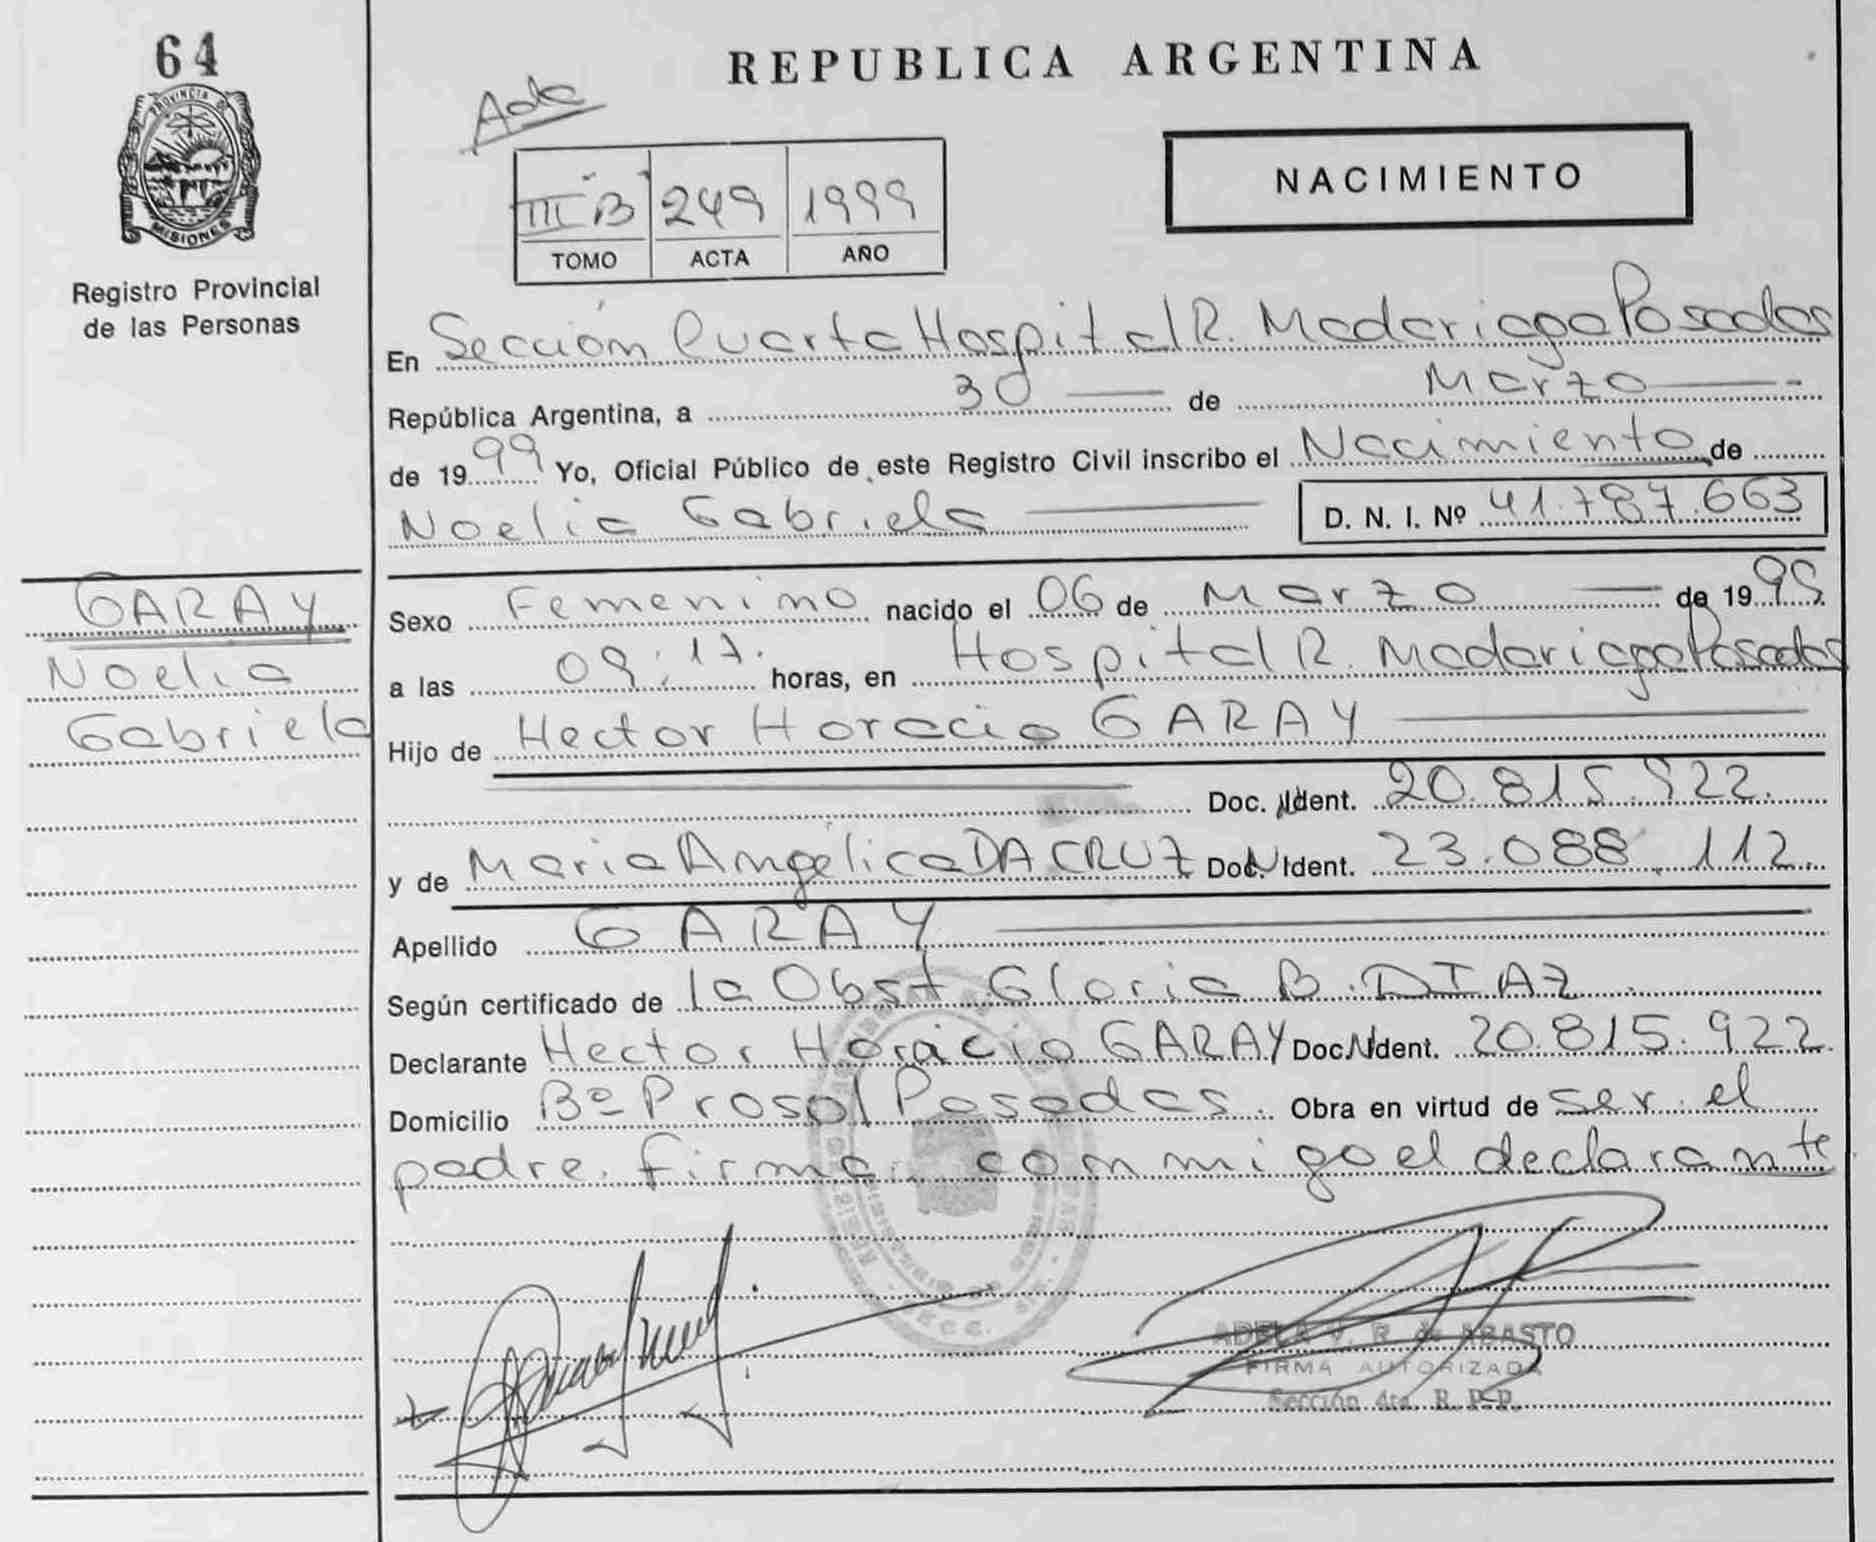 64
PROVINCIA DE
MISIONES
Registro Provincial
de las Personas
REPUBLICA ARGENTINA
Acta
III B 249 1999
TOMO ACTA AÑO
NACIMIENTO
En Sección Cuarta Hospital R. Madariaga Posadas
República Argentina, a 30 de Marzo
de 1999 Yo, Oficial Público de este Registro Civil inscribo el Nacimiento de
Noelia Gabriela D. N. I. Nº 41.787.663
GARAY
Noelia
Gabriela
Sexo Femenino nacido el 06 de Marzo de 1999
a las 09:17. horas, en Hospital R. Madariaga Posadas
Hijo de Hector Horacio GARAY
Doc. Ident. 20.815.922.
y de Maria Angélica DA CRUZ Doc. Ident. 23.088.112.
Apellido GARAY
Según certificado de la Obst Gloria B. DIAZ
Declarante Hector Horacio GARAY Doc. Ident. 20.815.922.
Domicilio Bº Prosol Posadas. Obra en virtud de ser el
padre. firma conmigo el declarante
ADELA V. R. de ABASTO
FIRMA AUTORIZADA
Sección 4ta. R. P. P.